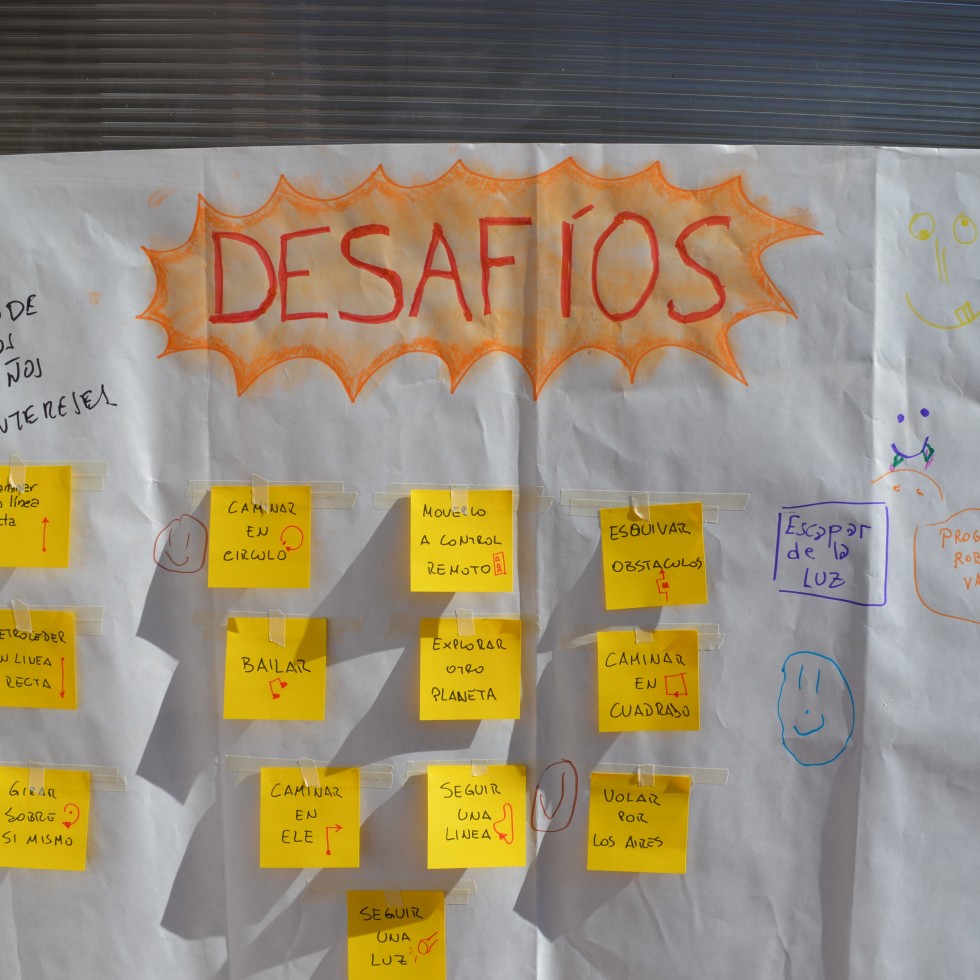 DESAFÍOS
DE
INTERESES
línea
CAMINAR
EN
CIRCULO
MOVERLO
A CONTROL
REMOTO
ESQUIVAR
OBSTACULOS
Escapar
de la
LUZ
EN LINEA
RECTA
BAILAR
EXPLORAR
OTRO
PLANETA
CAMINAR
EN
CUADRADO
GIRAR
SOBRE
SI MISMO
CAMINAR
EN
ELE
SEGUIR
UNA
LINEA
VOLAR
POR
LOS AIRES
SEGUIR
UNA
LUZ